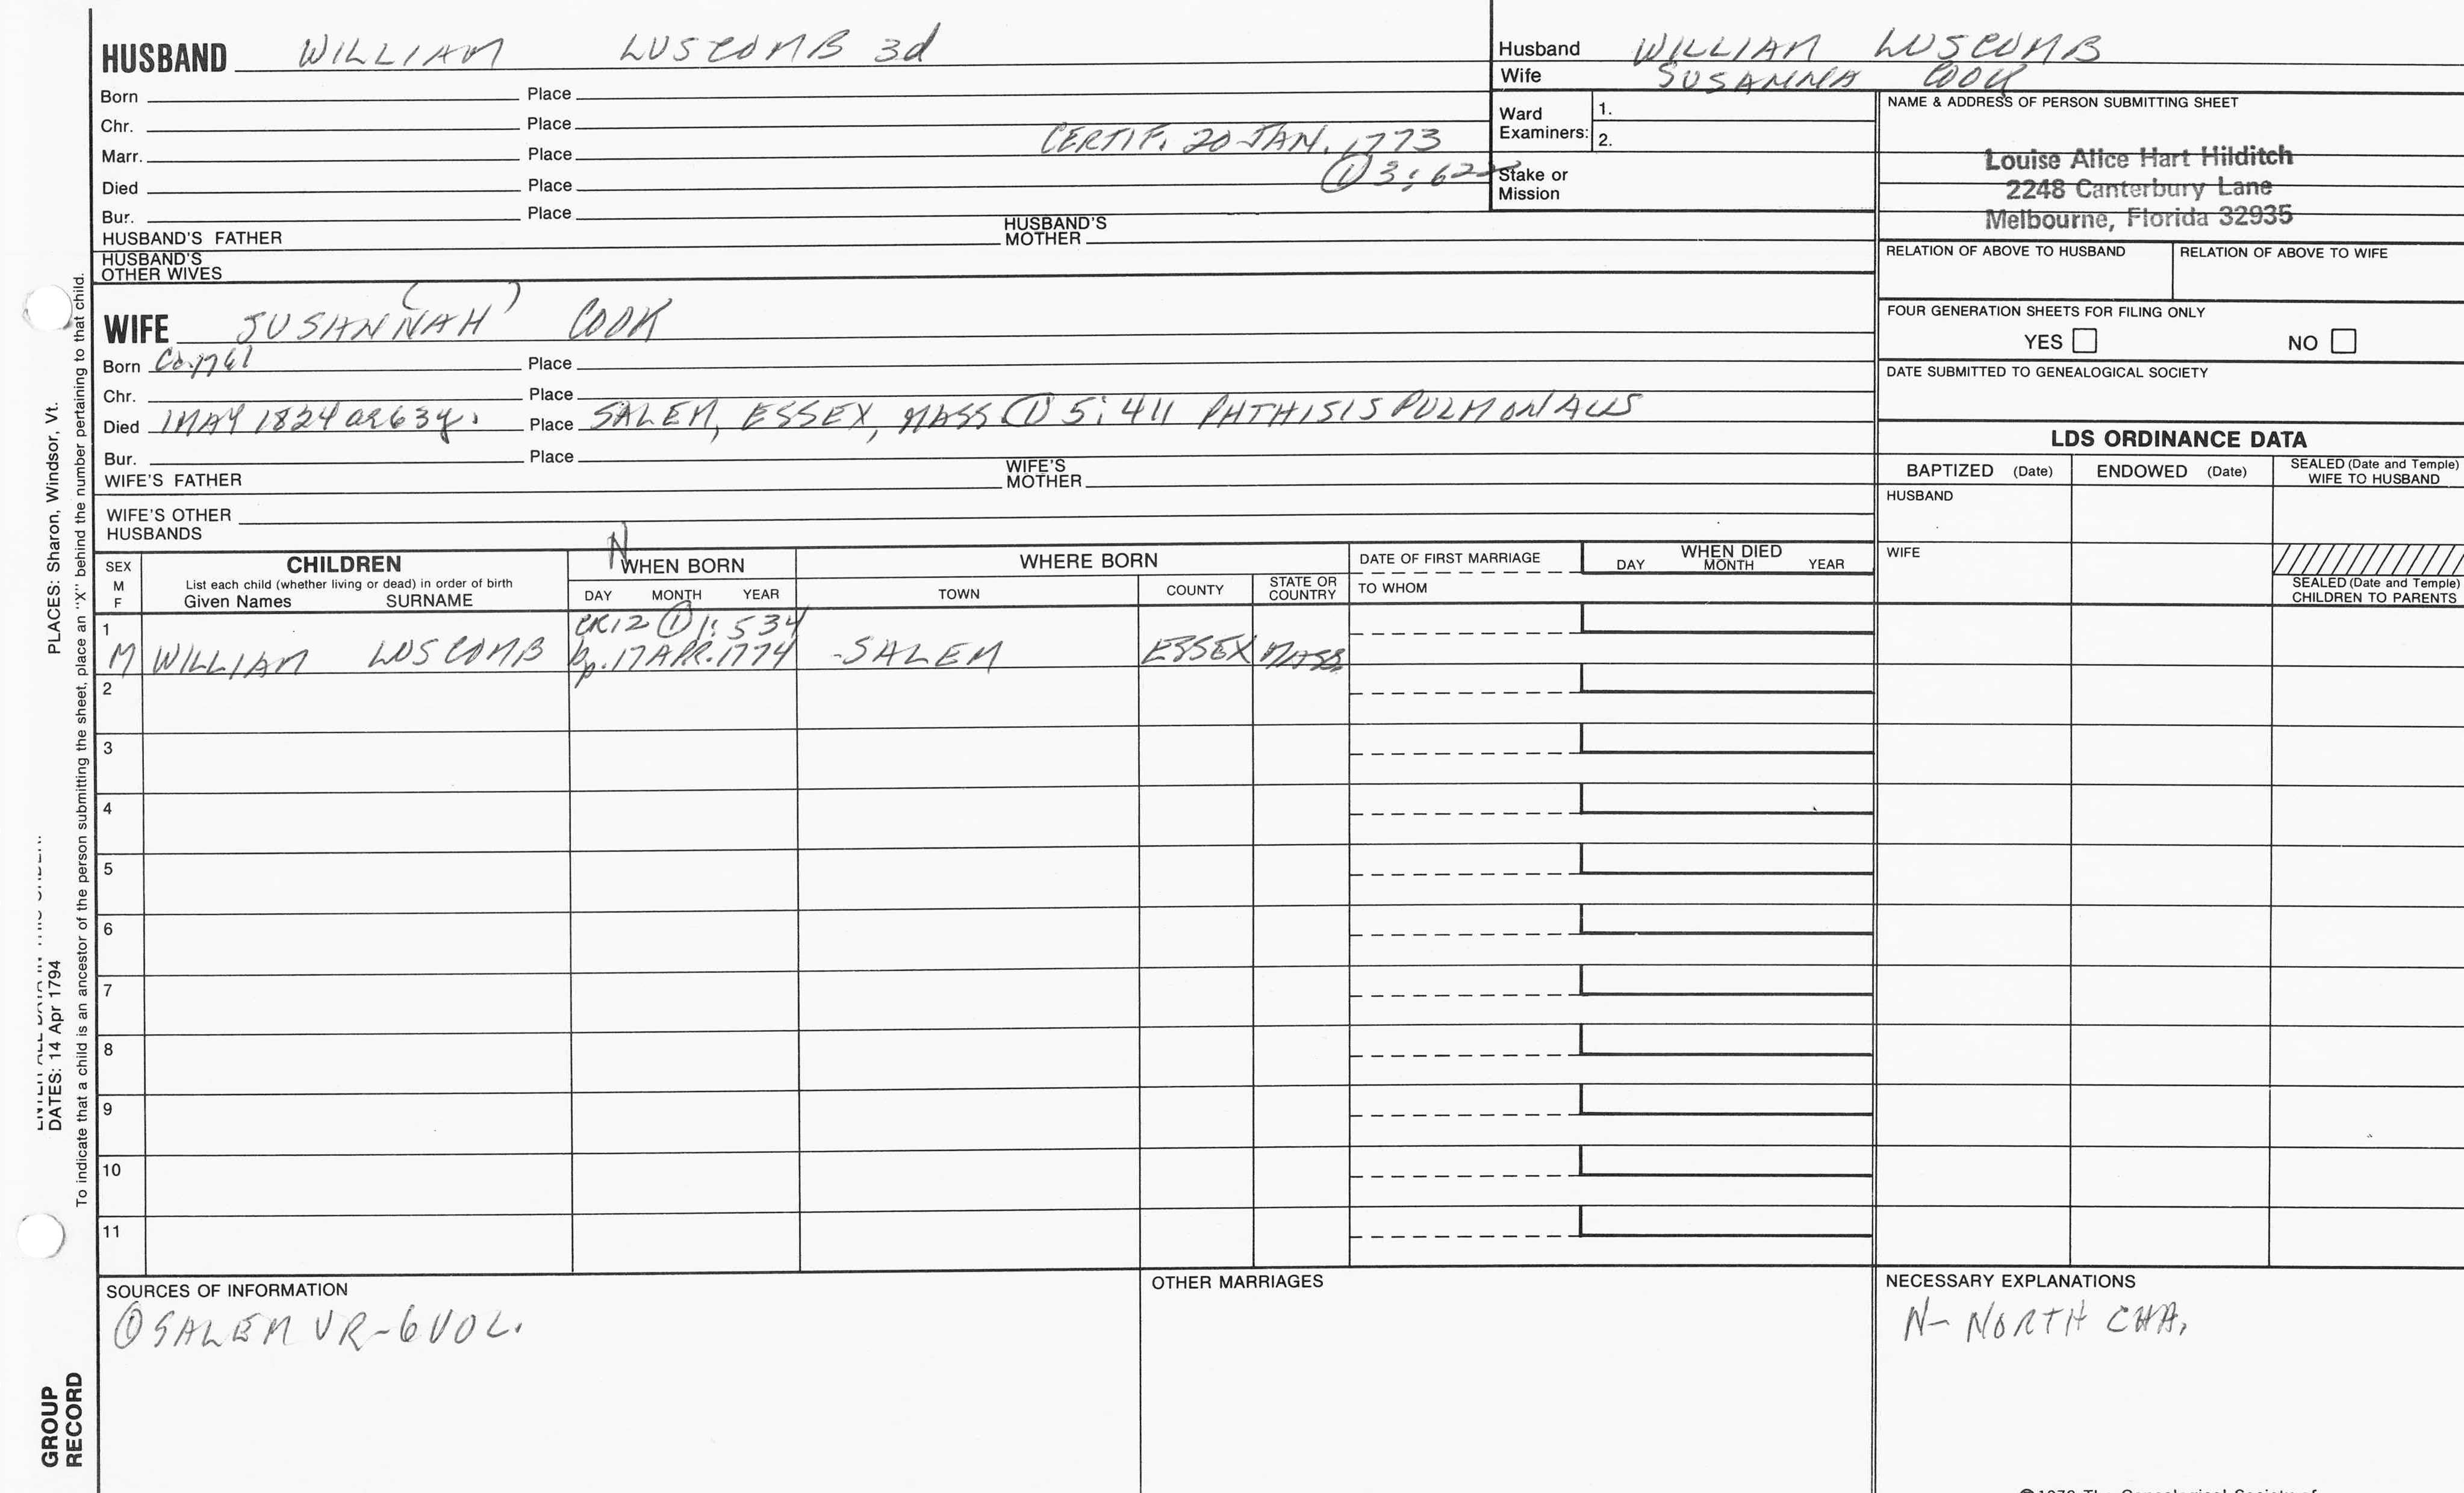 HUSBAND WILLIAM LUSCOMB 3d
Born Place
Chr. Place
Marr. Place CERTIF. 20 JAN. 1773
Died Place ① 3: 622
Bur. Place
HUSBAND'S FATHER HUSBAND'S MOTHER
HUSBAND'S OTHER WIVES
Husband WILLIAM LUSCOMB
Wife SUSANNA COOK
Ward Examiners: 1.
2.
Stake or Mission
NAME & ADDRESS OF PERSON SUBMITTING SHEET
Louise Alice Hart Hilditch
2248 Canterbury Lane
Melbourne, Florida 32935
RELATION OF ABOVE TO HUSBAND RELATION OF ABOVE TO WIFE
FOUR GENERATION SHEETS FOR FILING ONLY
YES NO
DATE SUBMITTED TO GENEALOGICAL SOCIETY
WIFE SUSANNAH ( ) COOK
Born Ca. 1761 Place
Chr. Place
Died 1MAY 1824 ae 63y. Place SALEM, ESSEX, MASS ① 5: 411 PHTHISIS PULMONALIS
Bur. Place
WIFE'S FATHER WIFE'S MOTHER
WIFE'S OTHER HUSBANDS
LDS ORDINANCE DATA
BAPTIZED (Date) ENDOWED (Date) SEALED (Date and Temple) WIFE TO HUSBAND
HUSBAND
WIFE
SEALED (Date and Temple) CHILDREN TO PARENTS
N
SEX M F CHILDREN WHEN BORN WHERE BORN DATE OF FIRST MARRIAGE WHEN DIED
List each child (whether living or dead) in order of birth
Given Names SURNAME DAY MONTH YEAR TOWN COUNTY STATE OR COUNTRY TO WHOM DAY MONTH YEAR
1 CR12 ① 1: 534
M WILLIAM LUSCOMB bp. 17 APR. 1774 -SALEM ESSEX MASS
2
3
4
5
6
7
8
9
10
11
SOURCES OF INFORMATION
① SALEM VR-6VOL.
OTHER MARRIAGES
NECESSARY EXPLANATIONS
N- NORTH CHA.
PLACES: Sharon, Windsor, Vt.
DATES: 14 Apr 1794
To indicate that a child is an ancestor of the person submitting the sheet, place an "X" behind the number pertaining to that child.
GROUP RECORD